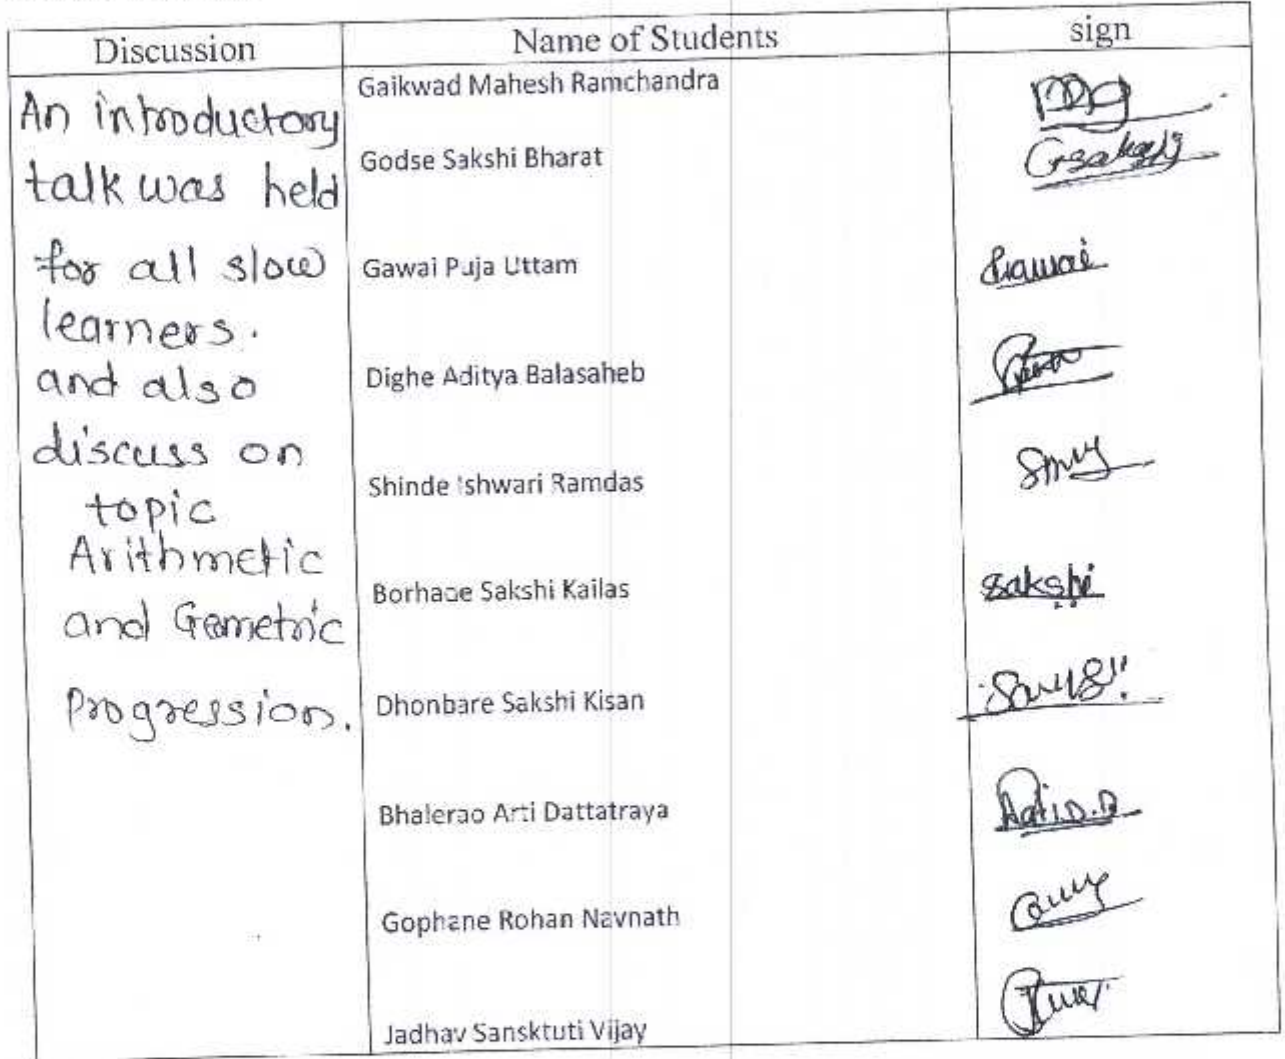 Discussion
Name of Students
sign
An introductory
talk was held
for all slow
learners.
and also
discuss on
topic
Arithmetic
and Gemetric
Progression.
Gaikwad Mahesh Ramchandra
Godse Sakshi Bharat
Gsakshi
Gawai Puja Uttam
Gawai
Dighe Aditya Balasaheb
Shinde Ishwari Ramdas
Borhade Sakshi Kailas
Sakshi
Dhonbare Sakshi Kisan
Bhalerao Arti Dattatraya
Arti D.B
Gophane Rohan Navnath
Jadhav Sansktuti Vijay